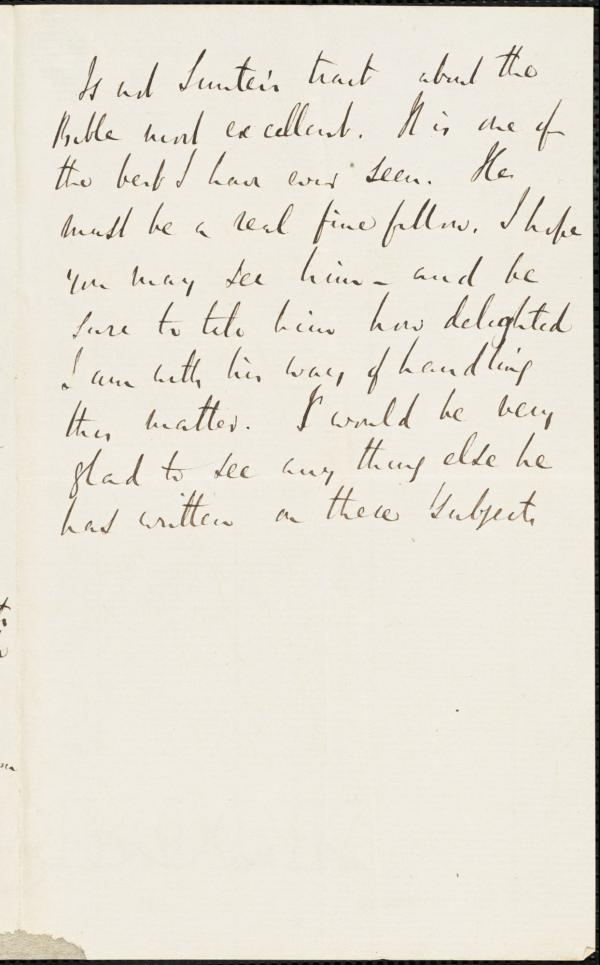 Is not tract about the
Bible most excellent. It is one of
the best I have ever seen. He
must be a real fine fellow. I hope
you may see him - and be
sure to tell him how delighted
I am with his way of handling
this matter. I would be very
glad to see any thing else he
has written on these subjects